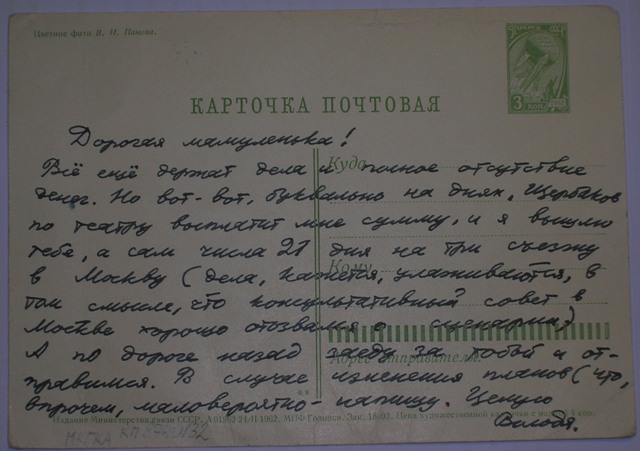 Цветное фото В. Н. Панова.
ПОЧТА СССР
3 КОП.
КАРТОЧКА ПОЧТОВАЯ
Дорогая мамуленька!
Куда
Всё ещё держат дела и полное отсутствие
денег. Но вот-вот, буквально на днях, Щербаков
по театру выплатит мне сумму, и я вышлю
тебе, а сам числа 21 дня на три съезжу
Кому
в Москву (дела, кажется, улаживаются, в
том смысле, что консультативный совет в
Москве хорошо отозвался о сценарии)
Адрес отправителя:
А по дороге назад заеду за тобой и от-
правимся. В случае изменения планов (что,
впрочем, маловероятно - напишу. Целую
Володя.
Издание Министерства связи СССР. 24/II-1962. МПФ Гознака. Зак. Цена художественной карточки с маркой 4 коп.